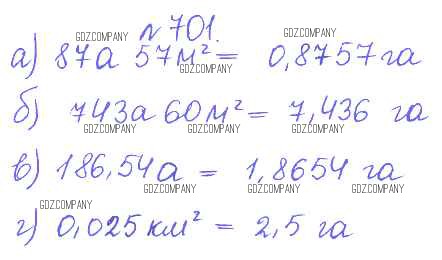 № 701.
GDZCOMPANY GDZCOMPANY
а) 87а 57м² = 0,8757 га
GDZCOMPANY
б) 743а 60м² = 7,436 га
GDZCOMPANY GDZCOMPANY GDZCOMPANY
в) 186,54а = 1,8654 га
GDZCOMPANY GDZCOMPANY GDZCOMPANY
GDZCOMPANY
г) 0,025 км² = 2,5 га